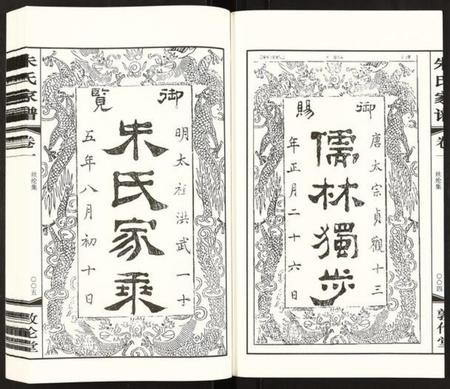 御賜
儒林獨步
唐太宗貞觀十三
年正月二十六日
朱氏家譜
卷一
世纶集
〇〇四
敦伦堂
御覽
朱氏家乘
明太祖洪武一十
五年八月初十日
朱氏家譜
卷一
〇〇五
敦伦堂